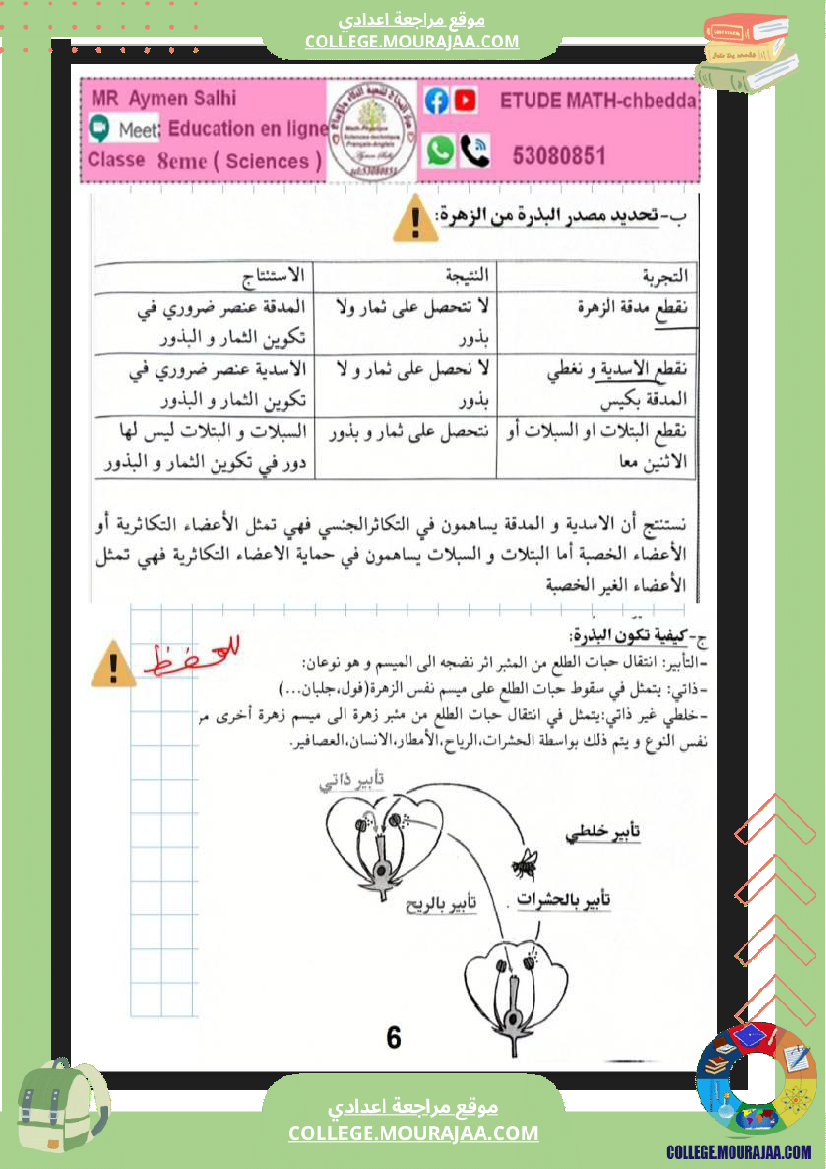 موقع مراجعة اعدادي
COLLEGE.MOURAJAA.COM
MR Aymen Salhi
Meet: Education en ligne
Classe 8eme ( Sciences )
Math-Physique
Sciences-technique
Français-Anglais
Aymen Salhi
tel:53080851
ETUDE MATH-chbedda
53080851
ب-تحديد مصدر البذرة من الزهرة:
التجربة النتيجة الاستنتاج
نقطع مدقة الزهرة لا نتحصل على ثمار ولا المدقة عنصر ضروري في
بذور تكوين الثمار و البذور
نقطع الاسدية و نغطي لا نحصل على ثمار و لا الاسدية عنصر ضروري في
المدقة بكيس بذور تكوين الثمار و البذور
نقطع البتلات او السبلات أو نتحصل على ثمار و بذور السبلات و البتلات ليس لها
الاثنين معا دور في تكوين الثمار و البذور
نستنتج أن الاسدية و المدقة يساهمون في التكاثرالجنسي فهي تمثل الأعضاء التكاثرية أو
الأعضاء الخصبة أما البتلات و السبلات يساهمون في حماية الاعضاء التكاثرية فهي تمثل
الأعضاء الغير الخصبة
ج-كيفية تكون البذرة:
للحفظ
-التأبير: انتقال حبات الطلع من المئبر اثر نضجه الى الميسم و هو نوعان:
-ذاتي: يتمثل في سقوط حبات الطلع على ميسم نفس الزهرة(فول،جلبان...)
-خلطي غير ذاتي:يتمثل في انتقال حبات الطلع من مئبر زهرة الى ميسم زهرة أخرى من
نفس النوع و يتم ذلك بواسطة الحشرات،الرياح،الأمطار،الانسان،العصافير.
تأبير ذاتي
تأبير خلطي
تأبير بالحشرات
تأبير بالريح
6
موقع مراجعة اعدادي
COLLEGE.MOURAJAA.COM
COLLEGE.MOURAJAA.COM